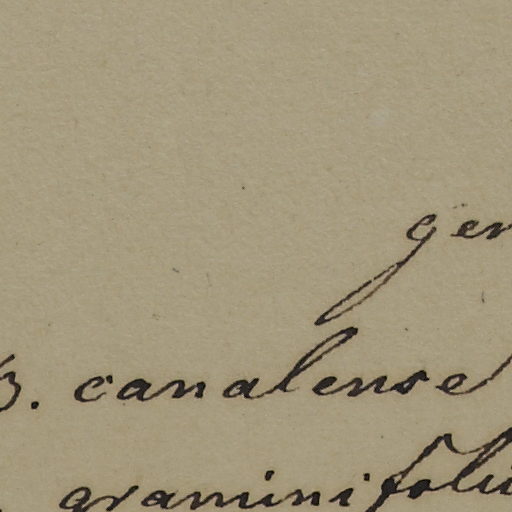 gen
B. canalense
graminifoliu